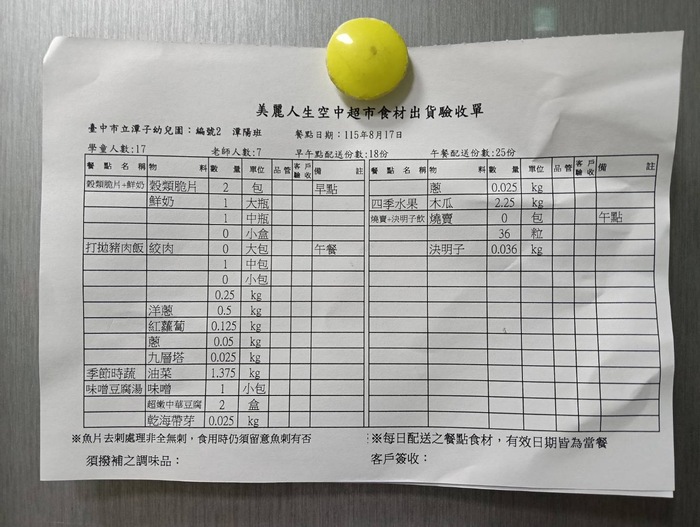 美麗人生空中超市食材出貨驗收單
臺中市立潭子幼兒園：編號2 潭陽班 餐點日期：115年8月17日
學童人數:17 老師人數:7 早午點配送份數:18份 午餐配送份數:25份
餐點名稱 物料 數量 單位 品管 客戶驗收 備註 餐點名稱 物料 數量 單位 品管 客戶驗收 備註
穀類脆片+鮮奶 穀類脆片 2 包 早點 蔥 0.025 kg
鮮奶 1 大瓶 四季水果 木瓜 2.25 kg
1 中瓶 燒賣+決明子飲 燒賣 0 包 午點
0 小盒 36 粒
打拋豬肉飯 絞肉 0 大包 午餐 決明子 0.036 kg
1 中包
0 小包
0.25 kg
洋蔥 0.5 kg
紅蘿蔔 0.125 kg
蔥 0.05 kg
九層塔 0.025 kg
季節時蔬 油菜 1.375 kg
味噌豆腐湯 味噌 1 小包
超嫩中華豆腐 2 盒
乾海帶芽 0.025 kg
※魚片去刺處理非全無刺，食用時仍須留意魚刺有否 ※每日配送之餐點食材，有效日期皆為當餐
須撥補之調味品： 客戶簽收：